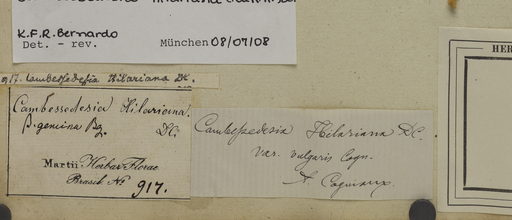 K.F.R. Bernardo
Det. - rev. München 08/07/08
917. Cambessedesia Hilariana DC.
Cambessedesia Hilariana.
β. genuina DC.
Martii Herbar. Florae
Brasil. No 917.
Cambessedesia Hilariana DC.
var. vulgaris Cogn.
A. Cogniaux.
HER